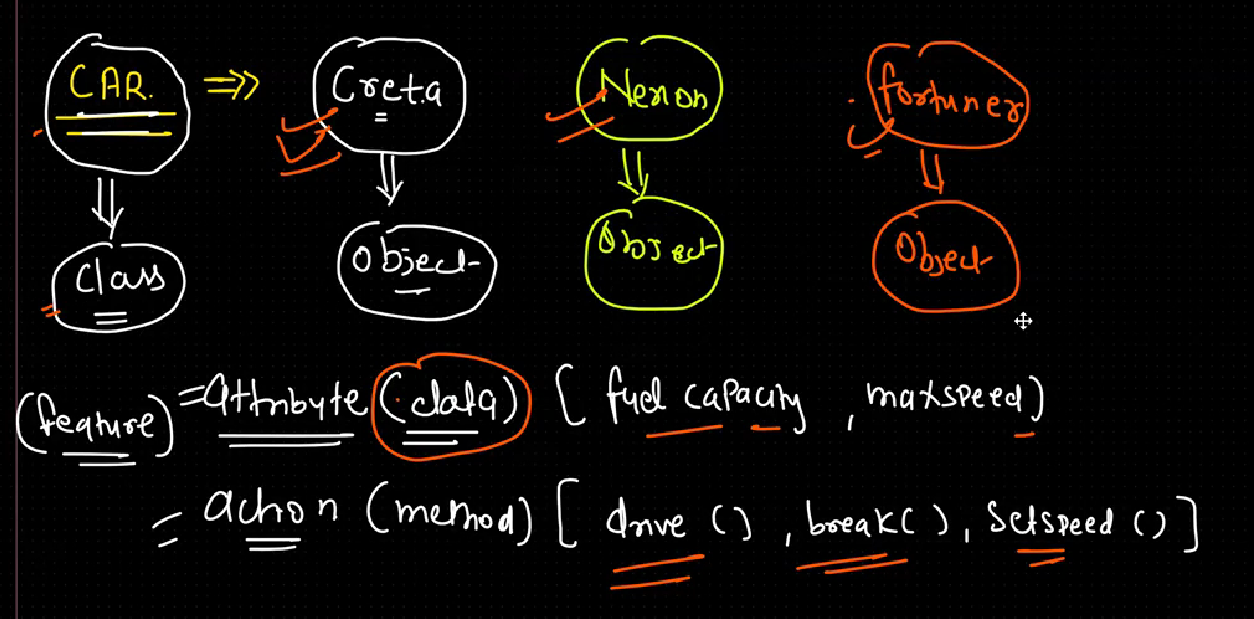 CAR. ⇒> Creta Nexon fortuner
Class Object Object Object
(feature) = Attribute (data) [ fuel capacity , maxspeed )
= action (method) [ drive () , break( ) , Setspeed () ]